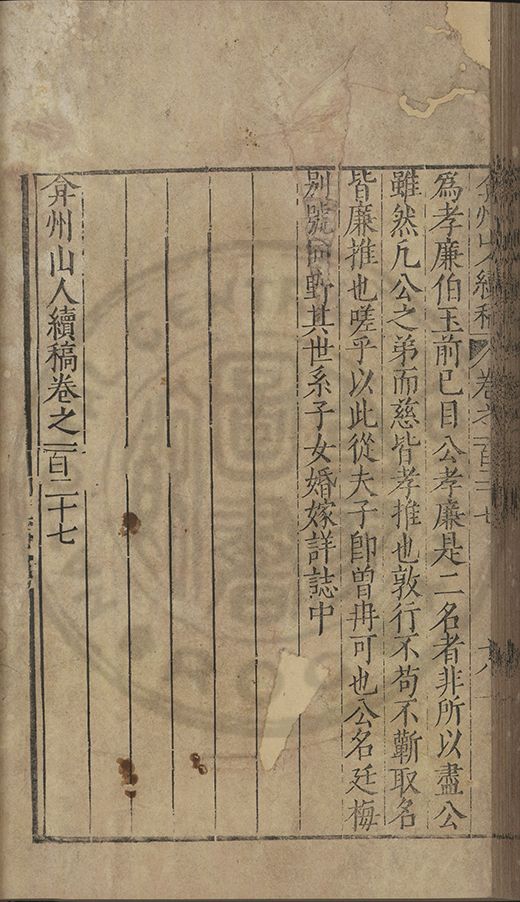 弇州山人續稿 卷之一百二十七 十八
爲孝廉伯玉前已目公孝廉是二名者非所以盡公
雖然凡公之弟而慈皆孝推也敦行不苟不蘄取名
皆廉推也嗟乎以此從夫子卽曾冉可也公名廷梅
別號 野其世系子女婚嫁詳誌中
弇州山人續稿卷之一百二十七